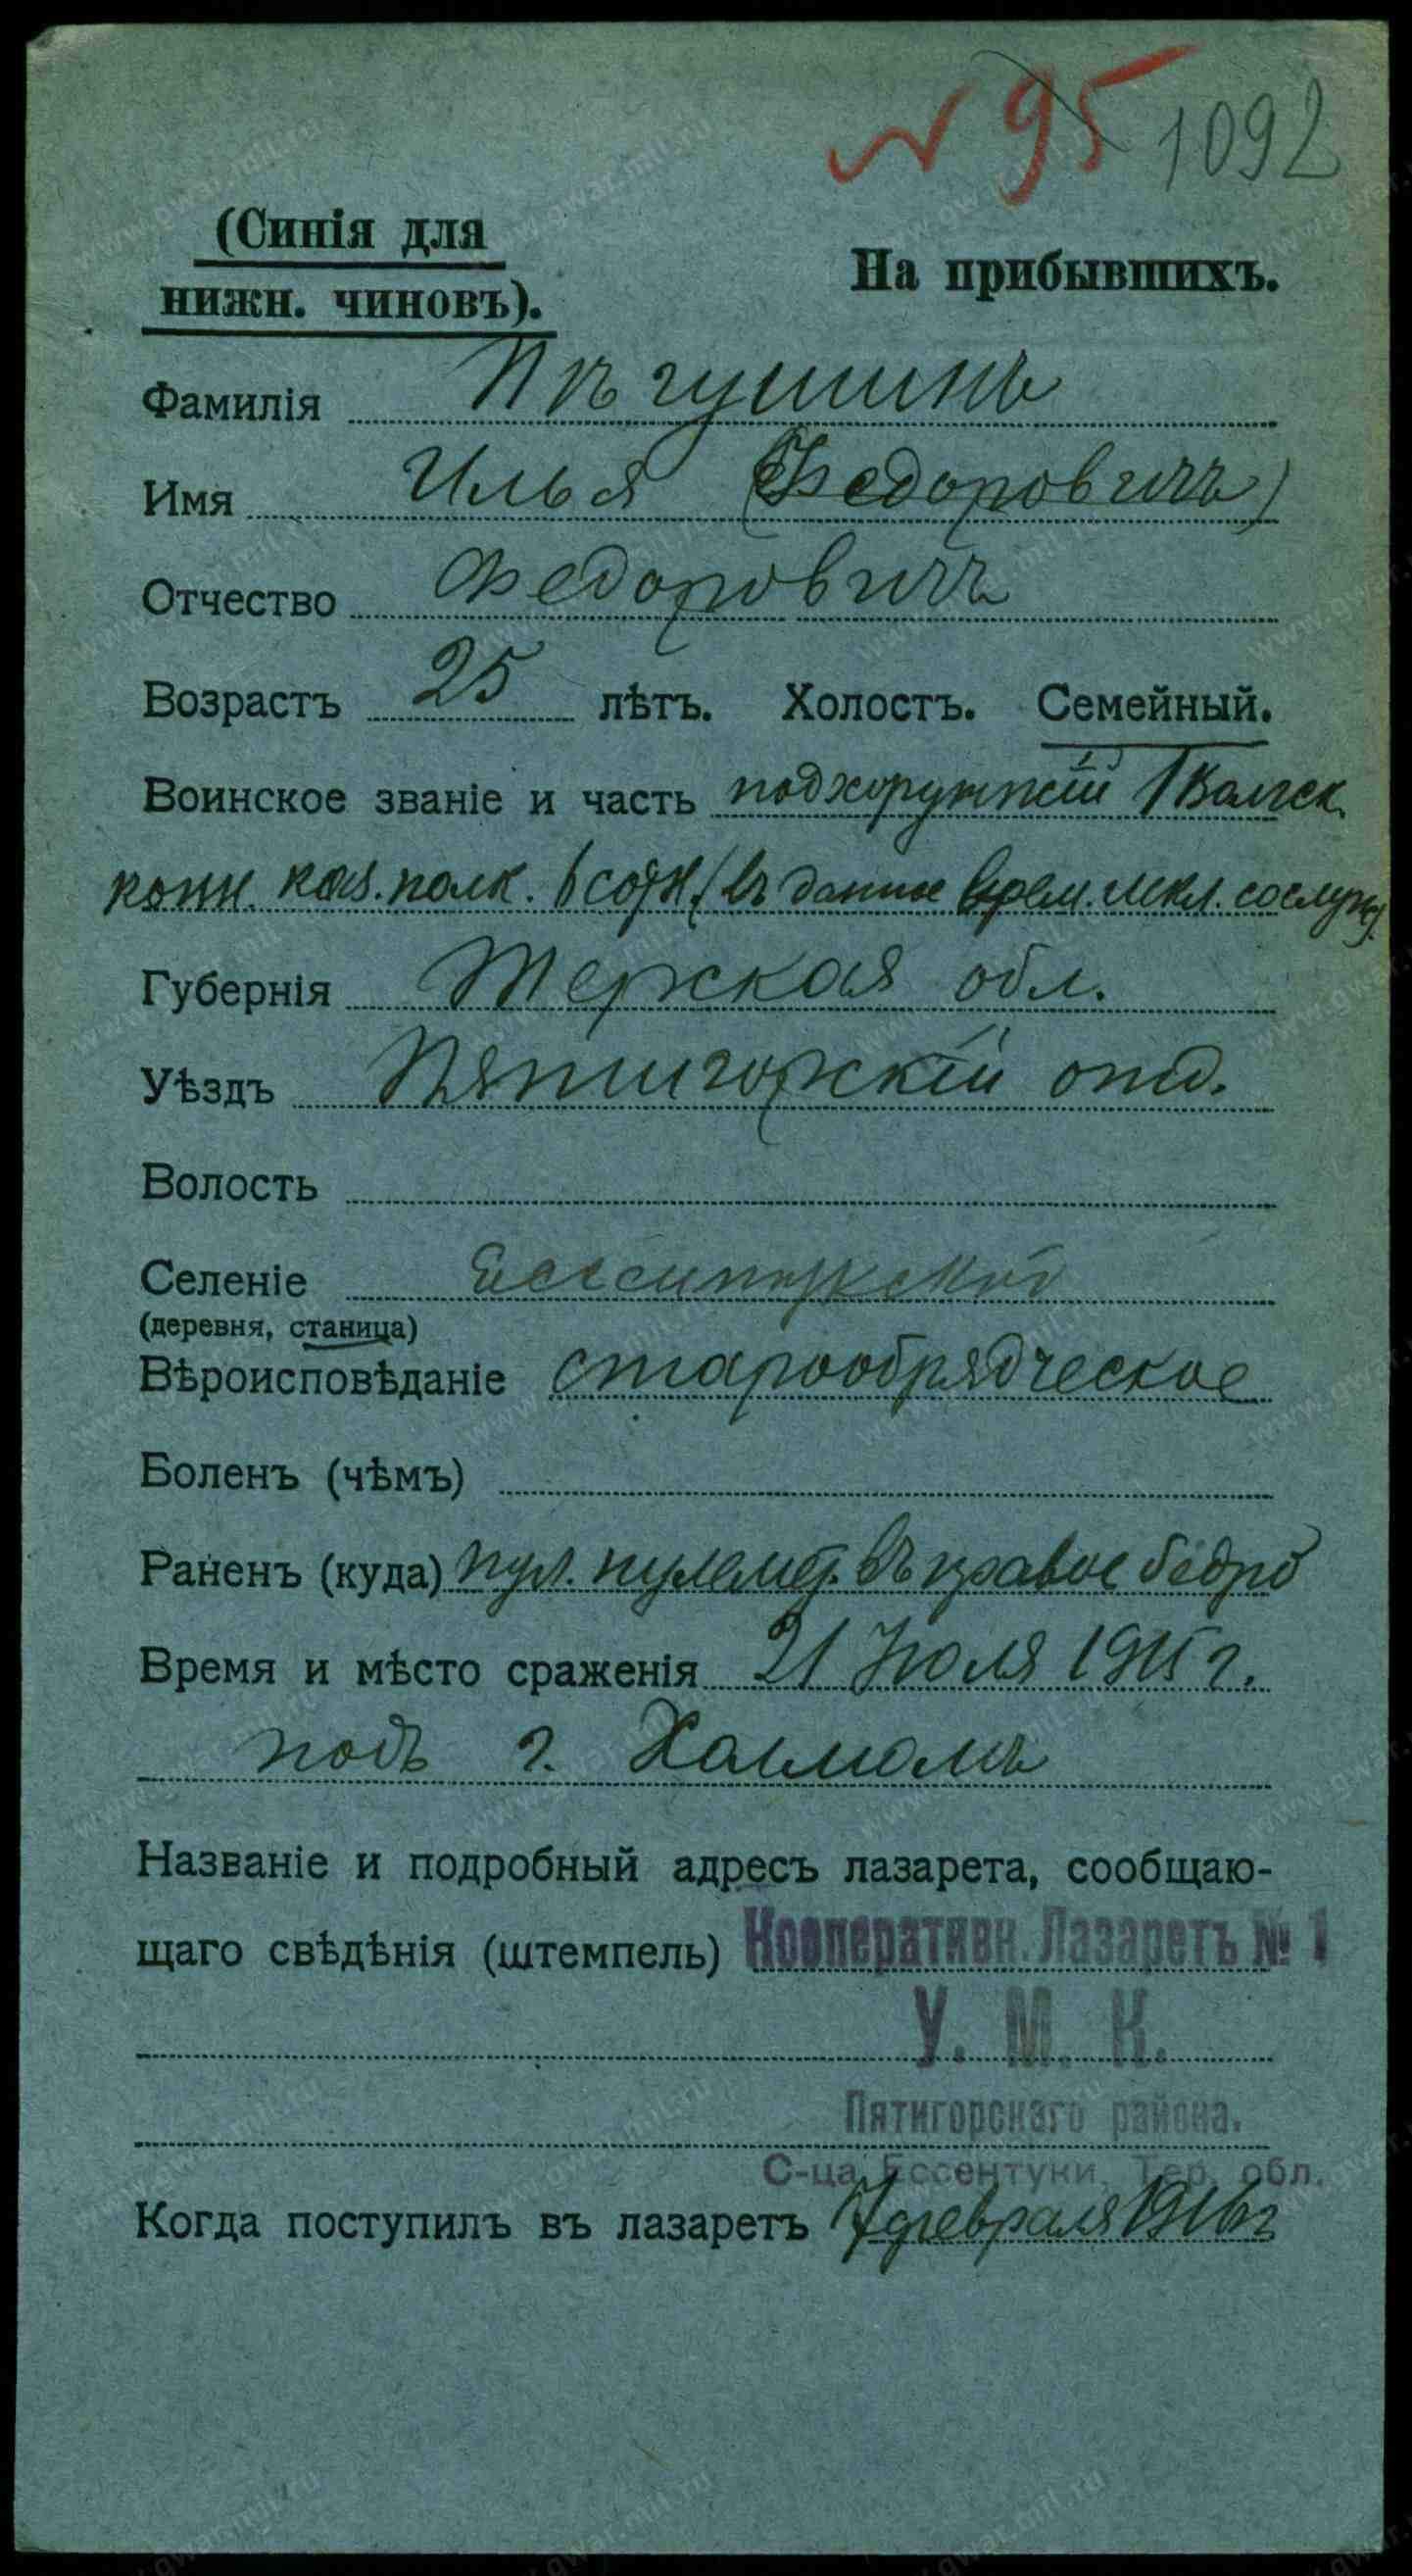 N 95 1092
(Синія для
нижн. чиновъ).
На прибывшихъ.
Фамилія Пѣгушинъ
Имя Илья (Федоровичъ)
Отчество Федоровичъ
Возрастъ 25 лѣтъ. Холостъ. Семейный.
Воинское званіе и часть подхорунжій 1 Волгск.
конн. каз. полк. 6 сотн. (въ данное врем.
Губернія Терская обл.
Уѣздъ Пятигорскій отд.
Волость
Селеніе
(деревня, станица)
Вѣроисповѣданіе старообрядческое
Боленъ (чѣмъ)
Раненъ (куда) пул. пулемет. въ правое бедро
Время и мѣсто сраженія 21 Іюля 1915 г.
подъ г. Холмомъ
Названіе и подробный адресъ лазарета, сообщаю-
щаго свѣдѣнія (штемпель) Кооперативн. Лазаретъ № 1
У. М. К.
Пятигорскаго района.
С-ца Ессентуки, Тер. обл.
Когда поступилъ въ лазаретъ 7 февраля 1916 г
www.gwar.mil.ru